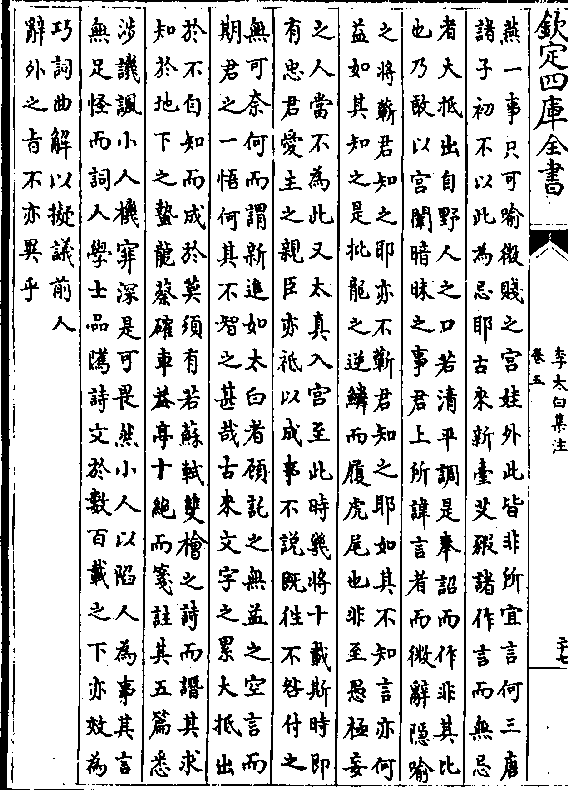 欽定四庫全書
李太白集注
卷五
二十七
燕一事只可喻微賤之宫娃外此皆非所宜言何三唐
諸子初不以此為忌耶古來新臺艾豭諸作言而無忌
者大抵出自野人之口若清平調是奉詔而作非其比
也乃敢以宫闈暗昧之事君上所諱言者而微辭隠喻
之將蘄君知之耶亦不蘄君知之耶如其不知言亦何
益如其知之是批龍之逆鱗而履虎尾也非至愚極妄
之人當不為此又太真入宫至此時幾將十載斯時即
有忠君愛主之親臣亦祗以成事不説既徃不咎付之
無可奈何而謂新進如太白者顧託之無益之空言而
期君之一悟何其不智之甚哉古來文字之累大抵出
於不自知而成於莫須有若蘇軾雙檜之詩而譖其求
知於地下之蟄龍蔡確車葢亭十絶而箋註其五篇悉
涉譏諷小人機穽深是可畏然小人以陷人為事其言
無足怪而詞人學士品隲詩文於數百載之下亦效為
巧詞曲解以擬議前人
辭外之旨不亦異乎